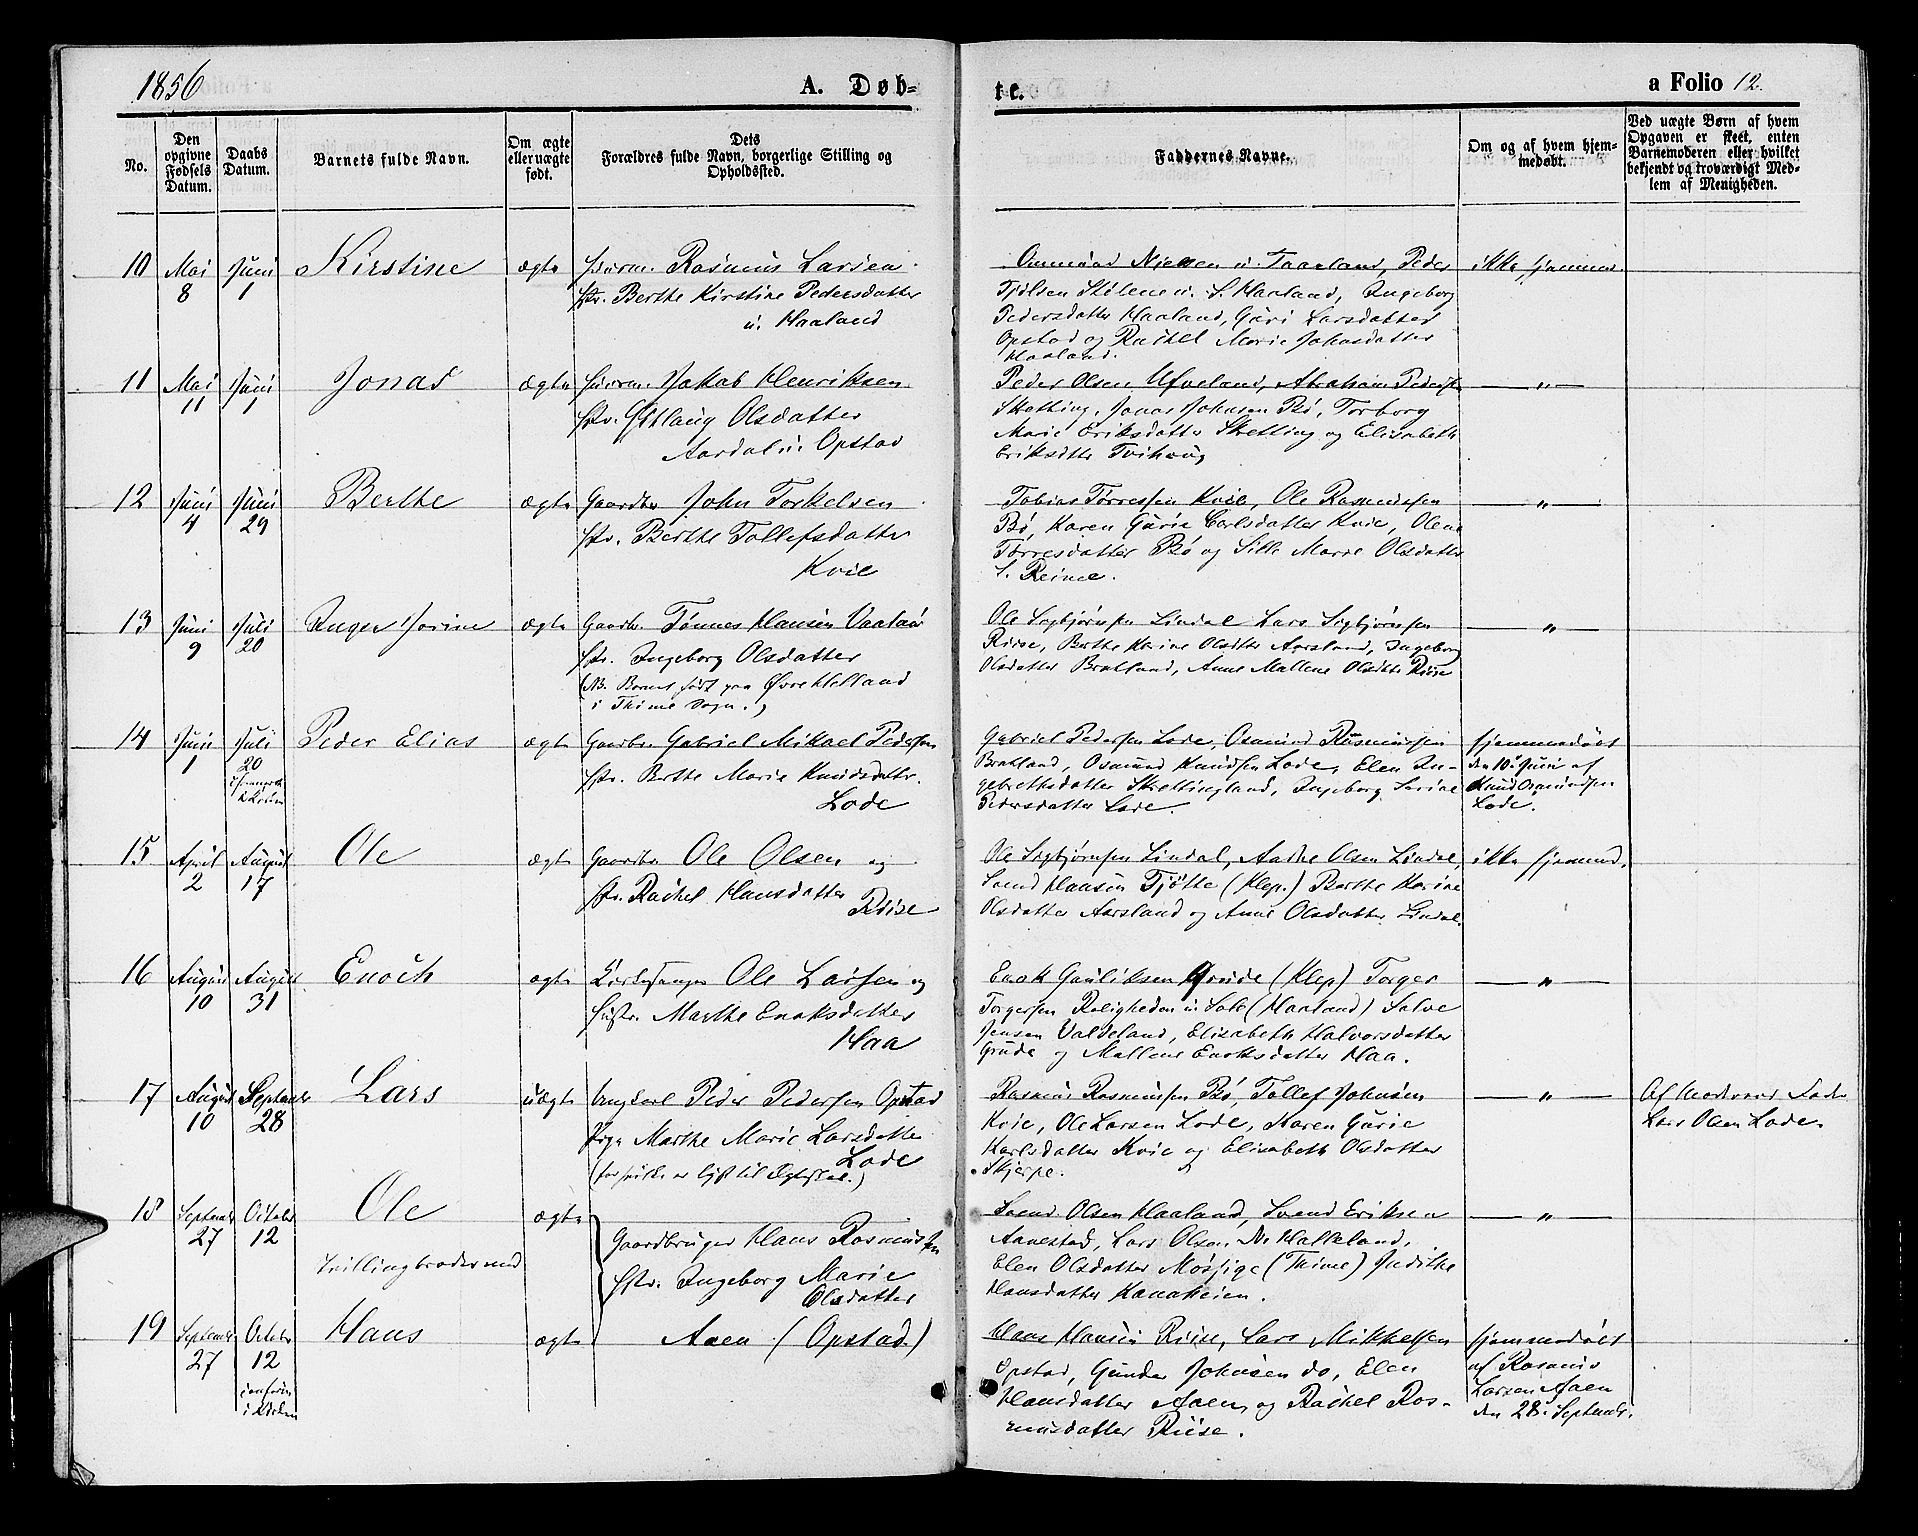 1856
A. Døb-
te.
a Folio 12.
No.
Den opgivne Fødsels Datum.
Daabs Datum.
Barnets fulde Navn.
Om ægte eller uægte født.
Dets Forældres fulde Navn, borgerlige Stilling og Opholdssted.
Faddernes Navne.
Om og af hvem hjemmedøbt.
Ved uægte Børn af hvem Opgaven er skeet, enten Barnemoderen eller hvilket bekjendt og troværdigt Medlem af Menigheden.
10 Mai 8 Juni 1 Kirstine ægte
Huusm. Rasmus Larsen
Hstr. Berthe Kirstine Pedersdatter
u. Haaland
Ommund Nielsen u. Taarland, Peder
Tjølsen Stølene u. S. Haaland, Ingeborg
Pedersdatter Haaland, Guri Larsdatter
Opstad og Rachel Marie Johnsdatter
Haaland.
ikke hjemmed.
11 Mai 11 Juni 1 Jonas ægte
Huusm. Jakob Henriksen
Hstr. Olsdatter
Aardal u. Opstad
Peder Olsen Ufveland, Abraham Peders.
Skretting, Jonas Johnsen Bø, Torborg
Marie Eriksdatter Skretting og Elisabeth
Eriksdtte Tvihoug
— " —
12 Juni 4 Juni 29 Berthe ægte
Gaardbr John Torkelsen
Hstr. Berthe Tollefsdatter
Kvie
Tobias Tørressen Kvie, Ole Rasmussen
Bø, Karen Gurie Carlsdatter Kvie, Olene
Tørresdatter Bø og Sille Marie Olsdatter
S. Reime.
— " —
13 Juni 9 Juli 20 Inger Jorine ægte
Gaardbr. Tønnes Hansen
Hstr. Ingeborg Olsdatter
(NB. Barnet født paa Øvre Helland
i Thime Sogn.)
Ole Sigbjørnsen Lindal Lars Sigbjørnsen
Riise, Berthe Karine Olsdtter Aarsland, Ingeborg
Olsdatter Bratland, Anne Mallene Olsdtte Riise
— " —
14 Juni 1 Juli 20 Peder Elias ægte
Gaardbr. Gabriel Mikael Pedersen
Hstr. Berthe Marie Knudsdatter.
Lode
Gabriel Pedersen Lode, Osmund Rasmussen
Bratland, Osmund Knudsen Lode, Elen In-
gebrethsdatter Skrettingland, Ingeborg Serine
Pedersdatter Lode.
hjemmedøbt
den 10. Juni af
Knud Osmundsen
Lode.
15 April 2 August 17 Ole ægte
Gaardbr Ole Olsen og
Hstr. Rachel Hansdatter
Riise
Ole Sigbjørnsen Lindal, Aadne Olsen Lindal,
Svend Hansen Tjøtte (Klep.) Berthe Karine
Olsdatter Aarsland og Anne Olsdatter Lindal.
ikke hjemmed.
16 August 10 August 31 Enoch ægte
Kirkesanger Ole Larsen og
Hustr. Marthe Enoksdatter
Haa
Enok Gauliksen Grude (Klep) Torger
Torgersen Roligheden u. Sole (Haaland) Salve
Jensen Valdeland, Elisabeth Halvorsdatter
Grude og Mallene Enoksdatter Haa.
— " —
17 August 10 September 28 Lars uægte
Ungkarl Peder Pedersen Opstad
Pige Marthe Marie Larsdatter
Lode
(for hvilke er lyst til Ægteskab.)
Rasmus Rasmussen Bø, Tollef Johnsen
Kvie, Ole Larsen Lode, Karen Gurie
Karlsdatter Kvie og Elisabeth Olsdatter
Skjerpe.
— " —
Af Moderens Fader
Lars Olsen Lode.
18 September 27 October 12 Ole ægte
Tvillingbroder med
Gaardbruger Hans Rasmussen
Hstr. Ingeborg Marie
Olsdatter
Svend Olsen Haaland, Svend Eriksen
Aanestad, Lars Olsen N. Hølland,
Elen Olsdatter Møssige (Thime) Judithe
Hansdatter Kanaheien.
— " —
19 September 27 October 12 Hans ægte
Aaen (Opstad.)
Hans Hansen Riise, Lars Mikkelsen
Opstad, Gunder Johnsen do, Elen
Hansdatter Aaen, og Rachel Ras-
musdatter Riise.
hjemmedøbt
af Rasmus
Larsen Aaen
den 28. Septembr.